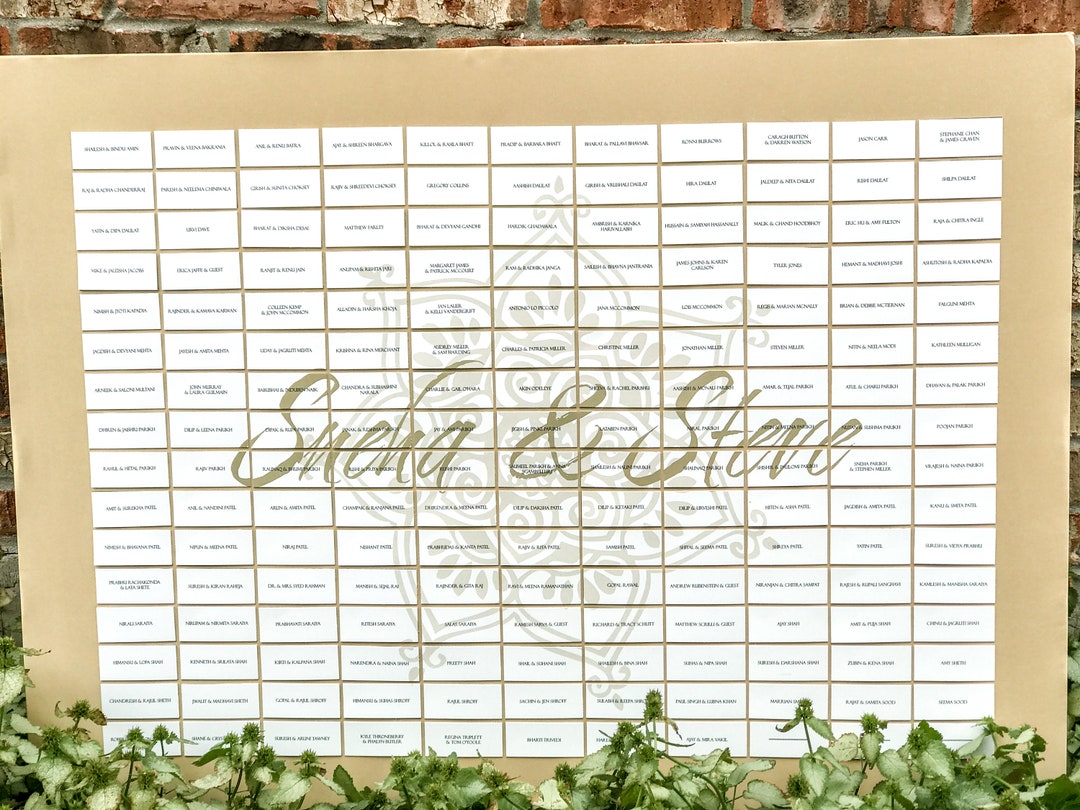 SHAILESH & BINDU AMIN
PRAVIN & VEENA BAKRANIA
ANIL & RENU BATRA
AJAY & SHIREEN BHARGAVA
KILLOL & RAMILA BHATT
PRADIP & BARBARA BHATT
BHARAT & PALLAVI BHAVSAR
RONNI BURROWS
CARAGH BUTTON
& DARREN WATSON
JASON CARR
STEPHANIE CHAN
& JAMES CRAVEN
RAJ & RADHA CHANDERRAJ
PARESH & NEELEMA CHINIWALA
GIRISH & SUNITA CHOKSEY
RAJIV & SHREEDEVI CHOKSEY
GREGORY COLLINS
AASHISH DAULAT
GIRISH & VRUSHALI DAULAT
HIRA DAULAT
JALDEEP & NITA DAULAT
RISHI DAULAT
SHILPA DAULAT
YATIN & DIPA DAULAT
URVI DAVE
BHARAT & DIKSHA DESAI
MATTHEW FARLEY
BHARAT & DEVYANI GANDHI
HARDIK GHADAWALA
AMBRISH & KARNIKA
HARIVALLABH
HUSSAIN & SAMIYAH HASSANALLY
MALIK & CHAND HOODBHOY
ERIC HU & AMY FULTON
RAJA & CHITRA INGLE
MIKE & JALEESHA JACOBS
ERICA JAFFE & GUEST
RANJIT & RENU JAIN
ANUPAM & RESHITA JAJU
MARGARET JAMES
& PATRICK MCCOURT
RAM & RADHIKA JANGA
SAILESH & BHAVNA JANTRANIA
JAMES JOHNS & KAREN
CARLSON
TYLER JONES
HEMANT & MADHAVI JOSHI
ASHUTOSH & RADHA KAPADIA
NIMISH & JYOTI KAPADIA
RAJINDER & KAMAYA KARWAN
COLLEEN KEMP
& JOHN MCCOMMON
ALLADIN & HARSHA KHOJA
IAN LAUER
& KELLI VANDERGRIFT
ANTONIO LO PICCOLO
JANA MCCOMMON
LOIS MCCOMMON
REGIS & MARIAN MCNALLY
BRIAN & DEBBIE MCTIERNAN
FALGUNI MEHTA
JAGDISH & DEVYANI MEHTA
JAYESH & AMITA MEHTA
UDAY & JAGRUTI MEHTA
KRISHNA & RINA MERCHANT
AUDREY MILLER
& SAM HARDING
CHARLES & PATRICIA MILLER
CHRISTINE MILLER
JONATHAN MILLER
STEVEN MILLER
NITIN & NEELA MODI
KATHLEEN MULLIGAN
ARNEEK & SALONI MULTANI
JOHN MURRAY
& LAURA GUILMAIN
BABUBHAI & INDUBEN NAIK
CHANDRA & SUBHASHINI
NARALA
CHARLIE & GAIL O'HARA
AKIN ODELEYE
& RACHEL PARIKH
AASHISH & MONALI PARIKH
AMAR & TEJAL PARIKH
ATUL & CHARU PARIKH
DHAVAN & PALAK PARIKH
DHIREN & JAISHRI PARIKH
DILIP & LEENA PARIKH
DIPAK & RUPA PARIKH
JANAK & REKHA PARIKH
JAY & AMI PARIKH
JIGISH & PINKI PARIKH
KATABEN PARIKH
MIRAL PARIKH
NITIN & MEENA PARIKH
& SUSHMA PARIKH
POOJAN PARIKH
RAHUL & HETAL PARIKH
RAJIV PARIKH
RAUNAQ & BHUMI PARIKH
RUSHI & PRIYA PARIKH
RUSHI PARIKH
SAUMEEL PARIKH & ANNA
SHAILESH & NALINI PARIKH
SHAUNAQ PARIKH
SHISHIR & DOLLOMI PARIKH
SNEHA PARIKH
& STEPHEN MILLER
VRAJESH & NAINA PARIKH
Sneha & Steve
AMIT & SUREKHA PATEL
ANIL & NANDINI PATEL
ARUN & AMITA PATEL
CHAMPAK & RANJANA PATEL
DHIRENDRA & MEENA PATEL
DILIP & DAKSHA PATEL
DILIP & KETAKI PATEL
DILIP & URVESHI PATEL
HITEN & ASHA PATEL
JAGDISH & AMITA PATEL
KANU & SMITA PATEL
NIMESH & BHAVANA PATEL
NIPUN & MEENA PATEL
NIRAJ PATEL
NISHANT PATEL
PRABHUDAS & KANTA PATEL
RAJIV & RITA PATEL
SAMISH PATEL
SHITAL & SEEMA PATEL
SHREYA PATEL
YATIN PATEL
SURESH & VIDYA PRABHU
PRABHU RACHAKONDA
& LATA SHETE
SURESH & KIRAN RAHEJA
DR. & MRS. SYED RAHMAN
MANISH & SEJAL RAI
RAJINDER & GITA RAJ
RAVI & MEENA RAMANATHAN
GOPAL RAWAL
ANDREW RUBENSTEIN & GUEST
NIRANJAN & CHITRA SAMPAT
RAJESH & RUPALI SANGHAVI
KAMLESH & MANISHA SARAIYA
NIRALI SARAIYA
NIRUPAM & NIRMITA SARAIYA
PRABHAVATI SARAIYA
RITESH SARAIYA
SALAS SARAIYA
KAMESH SARVA & GUEST
RICHARD & TRACY SCHUTT
MATTHEW SCRULL & GUEST
AJAY SHAH
AMIT & PUJA SHAH
CHINU & JAGRUTI SHAH
HIMANSU & LOPA SHAH
KENNETH & SRILATA SHAH
KIRTI & KALPANA SHAH
NARENDRA & NAINA SHAH
PREETY SHAH
SHAIL & SUHANI SHAH
SHAILESH & BINA SHAH
SUHAS & NIPA SHAH
SURESH & DARSHANA SHAH
ZUBIN & KENA SHAH
AMY SHETH
CHANDRESH & RAJUL SHETH
JIWALIT & MADHAVI SHETH
GOPAL & RAJUL SHROFF
HIMANSU & SUHAS SHROFF
RAJUL SHROFF
SACHIN & JEN SHROFF
SUBASH & REEPA
PAUL SINGH & LUBNA KHAN
RAJAT & SAMITA SOOD
SEEMA SOOD
SHANE &
SURESH & ARUNI TAWNEY
KYLE THRONEBERRY
& PHALYN BUTLER
REGINA TRIPLETT
& TOM O'TOOLE
BHARTI TRIVEDI
AJAY & MIRA VAKIL